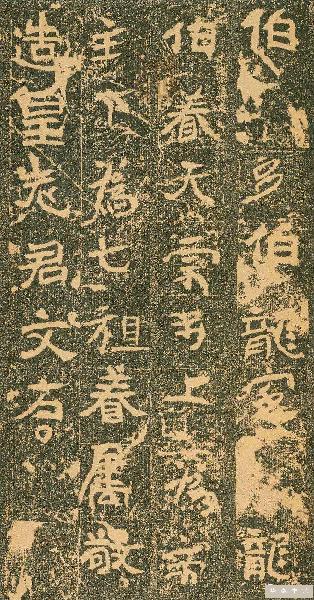 伯多伯龍定龍
伯養天宗等上為帝
主下為七祖眷屬敬
造皇先君文石